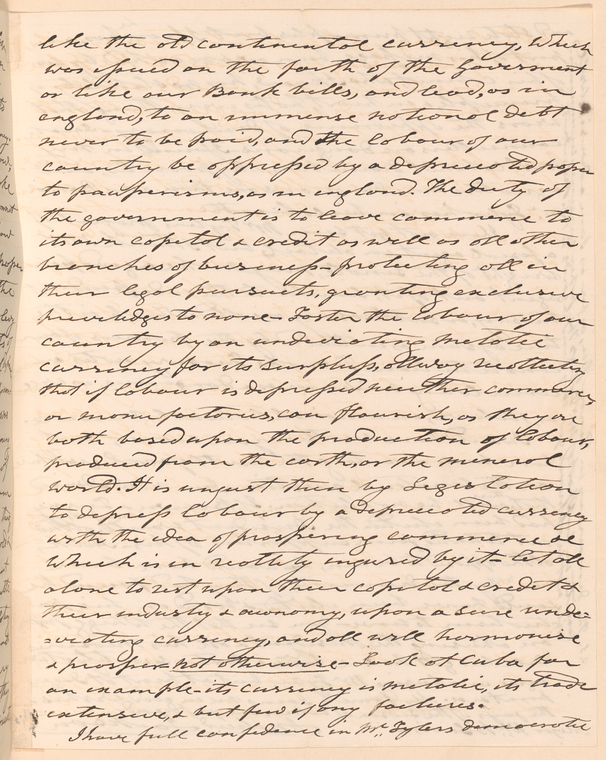 like the old continental currency, which
was issued on the faith of the Goverment
or like our Bank bills, and lead, as in
england, to an immense national debt
never to be paid, and the labour of our
country be oppressed by a depreciated paper
to pauperisms, as in england. The duty of
the government is to leave commerce to
its own capital & credit as well as all other
branches of buisness - protecting all in
their legal pursuits, granting exclusive
priviledges to none - Foster the labour of our
country by an undeviating metalic
currency for its surpluss, allway recollecting
that if labour is depressed neither commerce,
or manufactories, can flourish, as they are
both based upon the production of labour,
produced from the earth, or the mineral
world. It is unjust then by Legislation
to depress labour by a depreciated currency
with the idea of prospering commerce
which is in reallity injured by it - Let all
alone to rest upon their capital & credit &
their industry & aconomy, upon a sure unde=
=viating currency, and all will harmonise
& prosper - not otherwise - Look at Cuba for
an example - its currency is metalic, its trade
extensive, & but few if any failures.
I have full confidence in Mr. Tylers democratic